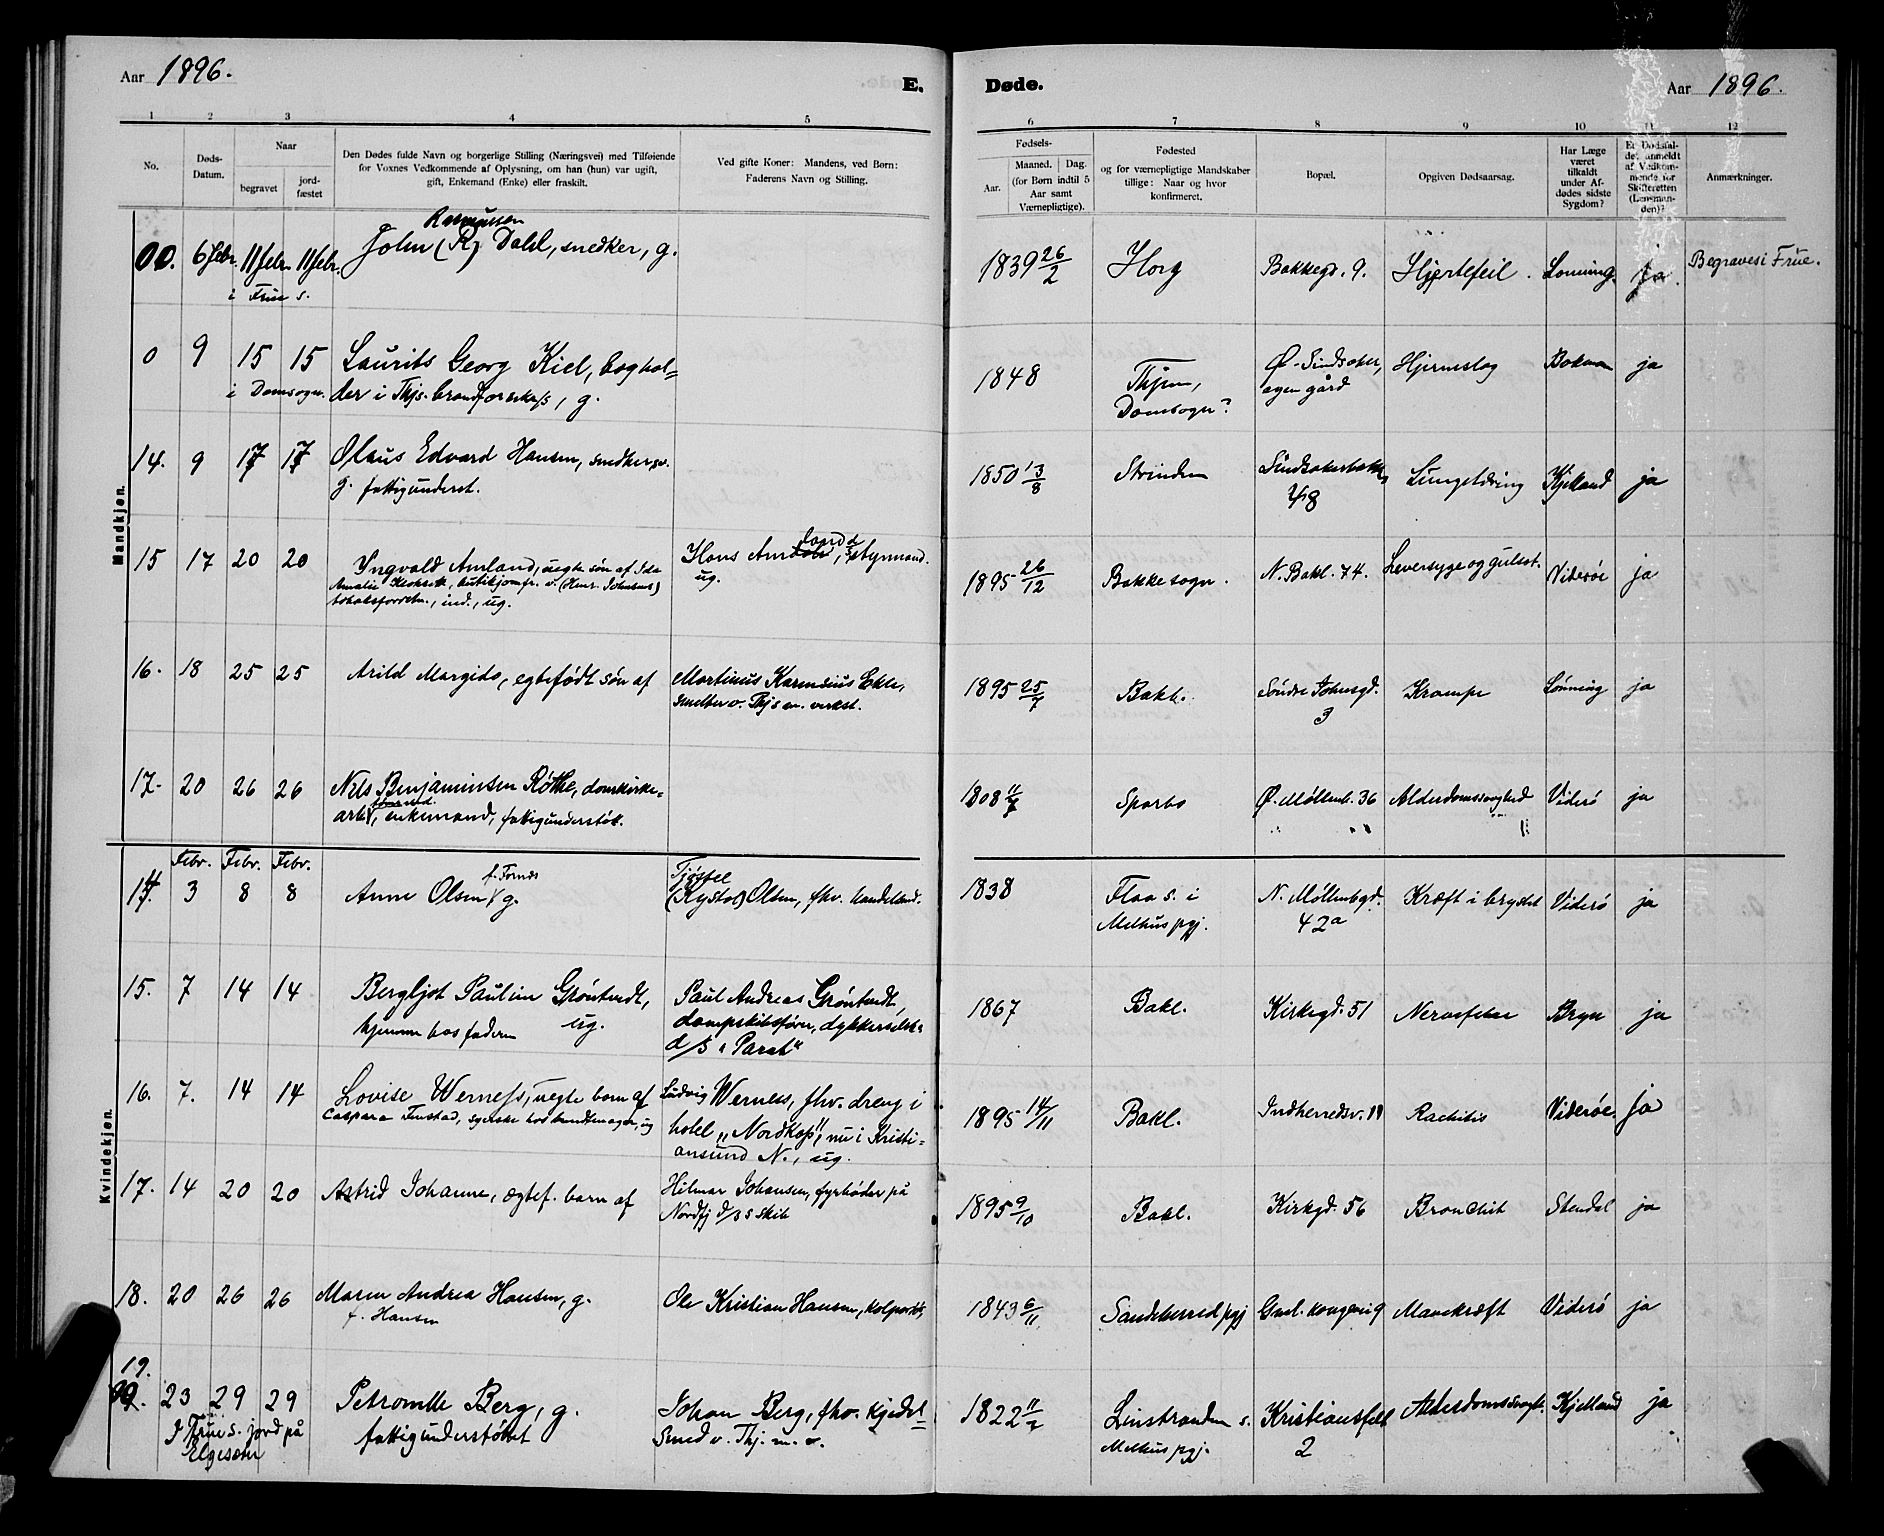 Aar 1896.
E.
Døde.
Aar 1896.
1 2 3 4 5 6 7 8 9 10 11 12
No.
Døds-Datum.
Naar
begravet
jordfæstet
Den Dødes fulde Navn og borgerlige Stilling (Næringsvei) med Tilføiende
for Voxnes Vedkommende af Oplysning, om han (hun) var ugift,
gift, Enkemand (Enke) eller fraskilt.
Ved gifte Koner: Mandens, ved Børn:
Faderens Navn og Stilling.
Fødsels-
Aar.
Maaned. Dag.
(for Børn indtil 5
Aar samt
Værnepligtige).
Fødested
og for værnepligtige Mandskaber
tillige: Naar og hvor
konfirmeret.
Bopæl.
Opgiven Dødsaarsag.
Har Læge
været
tilkaldt
under Af-
dødes sidste
Sygdom?
Er Dødsfal-
det anmeldt
af Vedkom-
mende for
Skifteretten
(Lensman-
den)?
Anmærkninger.
Mandkjøn.
Rasmussen
00. 6 febr. 11 febr. 11 febr. John (R) Dahl, snedker, g. 1839 26/2 Horg Bakkegd. 9. Hjertefeil. Lønning ja Begraves i Frue.
i Frue s.
0 9 15 15 Laurits Georg Kiel, boghol= 1848 Thjem, Ø. Sindsaker, Hjerneslag ja
i Domsogn. der i Thjs. brandforsk., g. Domsogn? egen gård
14. 9 17 17 Olaus Edvard Hansen, snedkersv. 1850 13/8 Strinden Kjelland ja
g. fattigunderst. 48
15 17 20 20 Yngvald Amland, uegte søn af Ida Hans Am land, styrmand. 1895 26/12 Bakke sogn. N. Bakl. 74. Leversyge og gulsot. Viderøe ja
Amalie ug.
ind., ug.
16. 18 25 25 Arild Margido, egtefødt søn af Martinus Ekle, 1895 25/7 Bakl. Søndre 3 Krampe Lønning ja
smelter v. Thjs m. verkst.
17. 20 26 26 Nils Benjaminsen Røthe, domkirke= 1808 Sparbo Ø. Møllenb. 36 Alderdomssvaghed Viderø ja
arb., enkemand, fattigunderstøt.
Kvindekjøn.
Febr. Febr. Febr.
14. 3 8 8 Anne Olsen g. Olsen, fhv. handelsmd. 1838 Flaa s. i N. Møllenbgd. Kræft i brystet Viderø ja
Melhus pgj. 42a
15. 7 14 14 Bergljot Pauline Grøntvedt, Paul Andreas Grøntvedt, 1867 Bakl. Kirkegd. 51 Nervefeber Bryn ja
hjemme hos faderen ug. dampskibsfører, dykkerselsk.
d/s "Parat"
16. 7. 14 14 Lovise Werness, uegte barn af Ludvig Werness, fhv. dreng i 1895 14/11 Bakl. Indherredsv. 19 Rachitis Viderøe. ja
Caspara hotel "Nordkap", nu i Kristi=
ansund N., ug.
17. 14 20 20 Astrid Johanne, ægtef. barn af Hilmar Johansen, fyrbøder på 1895 9/10 Bakl. Kirkgd. 56 Bronchit Stendal ja
Nordfj d/s s skib
18. 20 26 26 Maren Andrea Hansen, g. Ole Kristian Hansen, kolportør, 1843 6/11 Sandeherred pgj Mavekræft Viderø ja
f. Hansen
19. 23 29 29 Petronelle Berg, g. Johan Berg, fhv. kjedel= 1822 Leinstranden s. Kristiansfeldt Alderdomssvagh. Kjelland ja
I Frue s. jord på fattigunderstøttet smed v. Thj. m. v. Melhus pgj. 2
Elgesæter